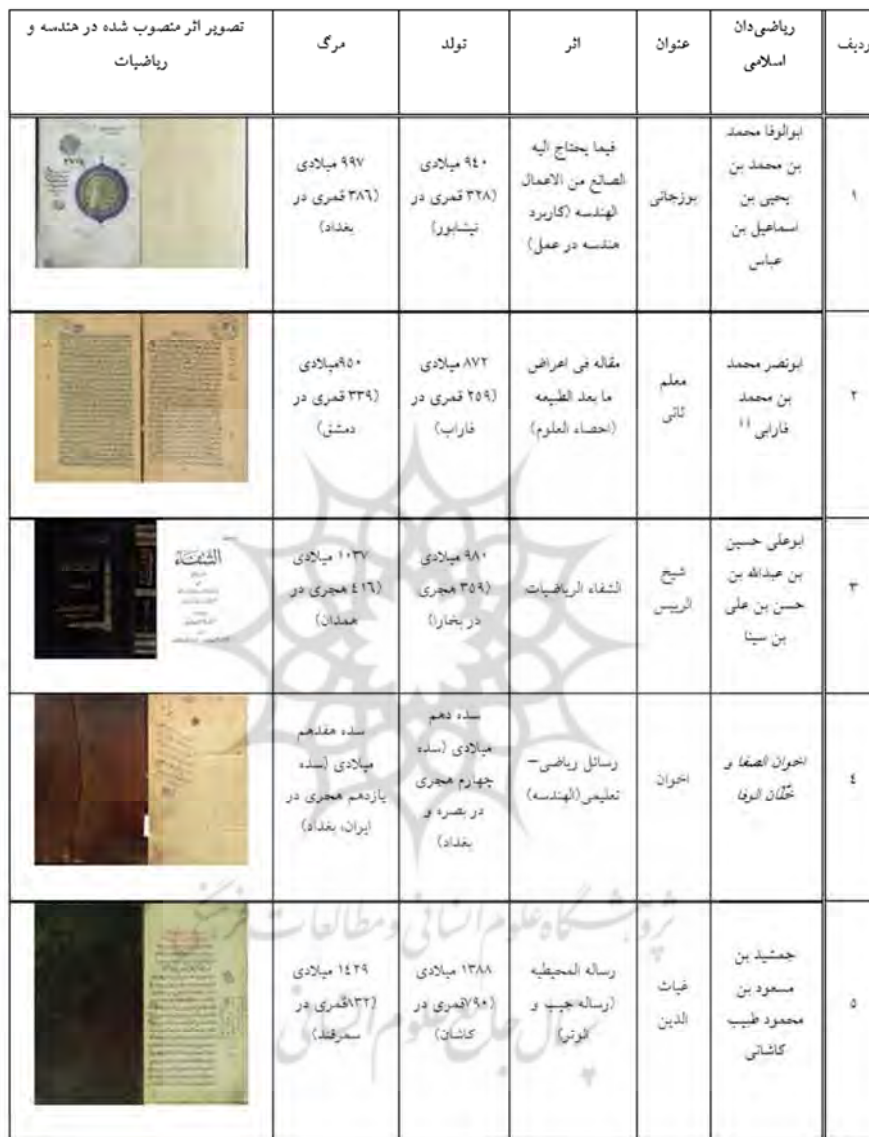 ردیف
ریاضی‌دان
اسلامی
عنوان
اثر
تولد
مرگ
تصویر اثر منصوب شده در هندسه و
ریاضیات
۱
ابوالوفا محمد
بن محمد بن
یحیی بن
اسماعیل بن
عباس
بوزجانی
فیما یحتاج الیه
الصانع من الاعمال
الهندسه (کاربرد
هندسه در عمل)
۹٤۰ میلادی
(۳۲۸ قمری در
نیشابور)
۹۹۷ میلادی
(۳۸٦ قمری در
بغداد)
۲
ابونصر محمد
بن محمد
فارابی ۱۱
معلم
ثانی
مقاله فی اعراض
ما بعد الطبیعه
(احصاء العلوم)
۸۷۲ میلادی
(۲۵۹ قمری در
فاراب)
۹۵۰میلادی
(۳۳۹ قمری در
دمشق)
۳
ابوعلی حسین
بن عبدالله بن
حسن بن علی
بن سینا
شیخ
الرییس
الشفاء الریاضیات
۹۸۰ میلادی
(۳۵۹ هجری
در بخارا)
۱۰۳۷ میلادی
(٤۱٦ هجری در
همدان)
الشفاء
٤
اخوان الصفا و
خُلّان الوفا
اخوان
رسائل ریاضی–
تعلیمی(الهندسه)
سده دهم
میلادی (سده
چهارم هجری
در بصره و
بغداد)
سده هفدهم
میلادی (سده
یازدهم هجری در
ایران، بغداد)
۵
جمشید بن
مسعود بن
محمود طبیب
کاشانی
غیاث
الدین
رساله المحیطیه
(رساله جیب و
الوتر)
۱۳۸۸ میلادی
(۷۹۰قمری در
کاشان)
۱٤۲۹ میلادی
(۸۳۲قمری در
سمرقند)
پژوهشگاه علوم انسانی و مطالعات فرهنگی
پرتال جامع علوم انسانی